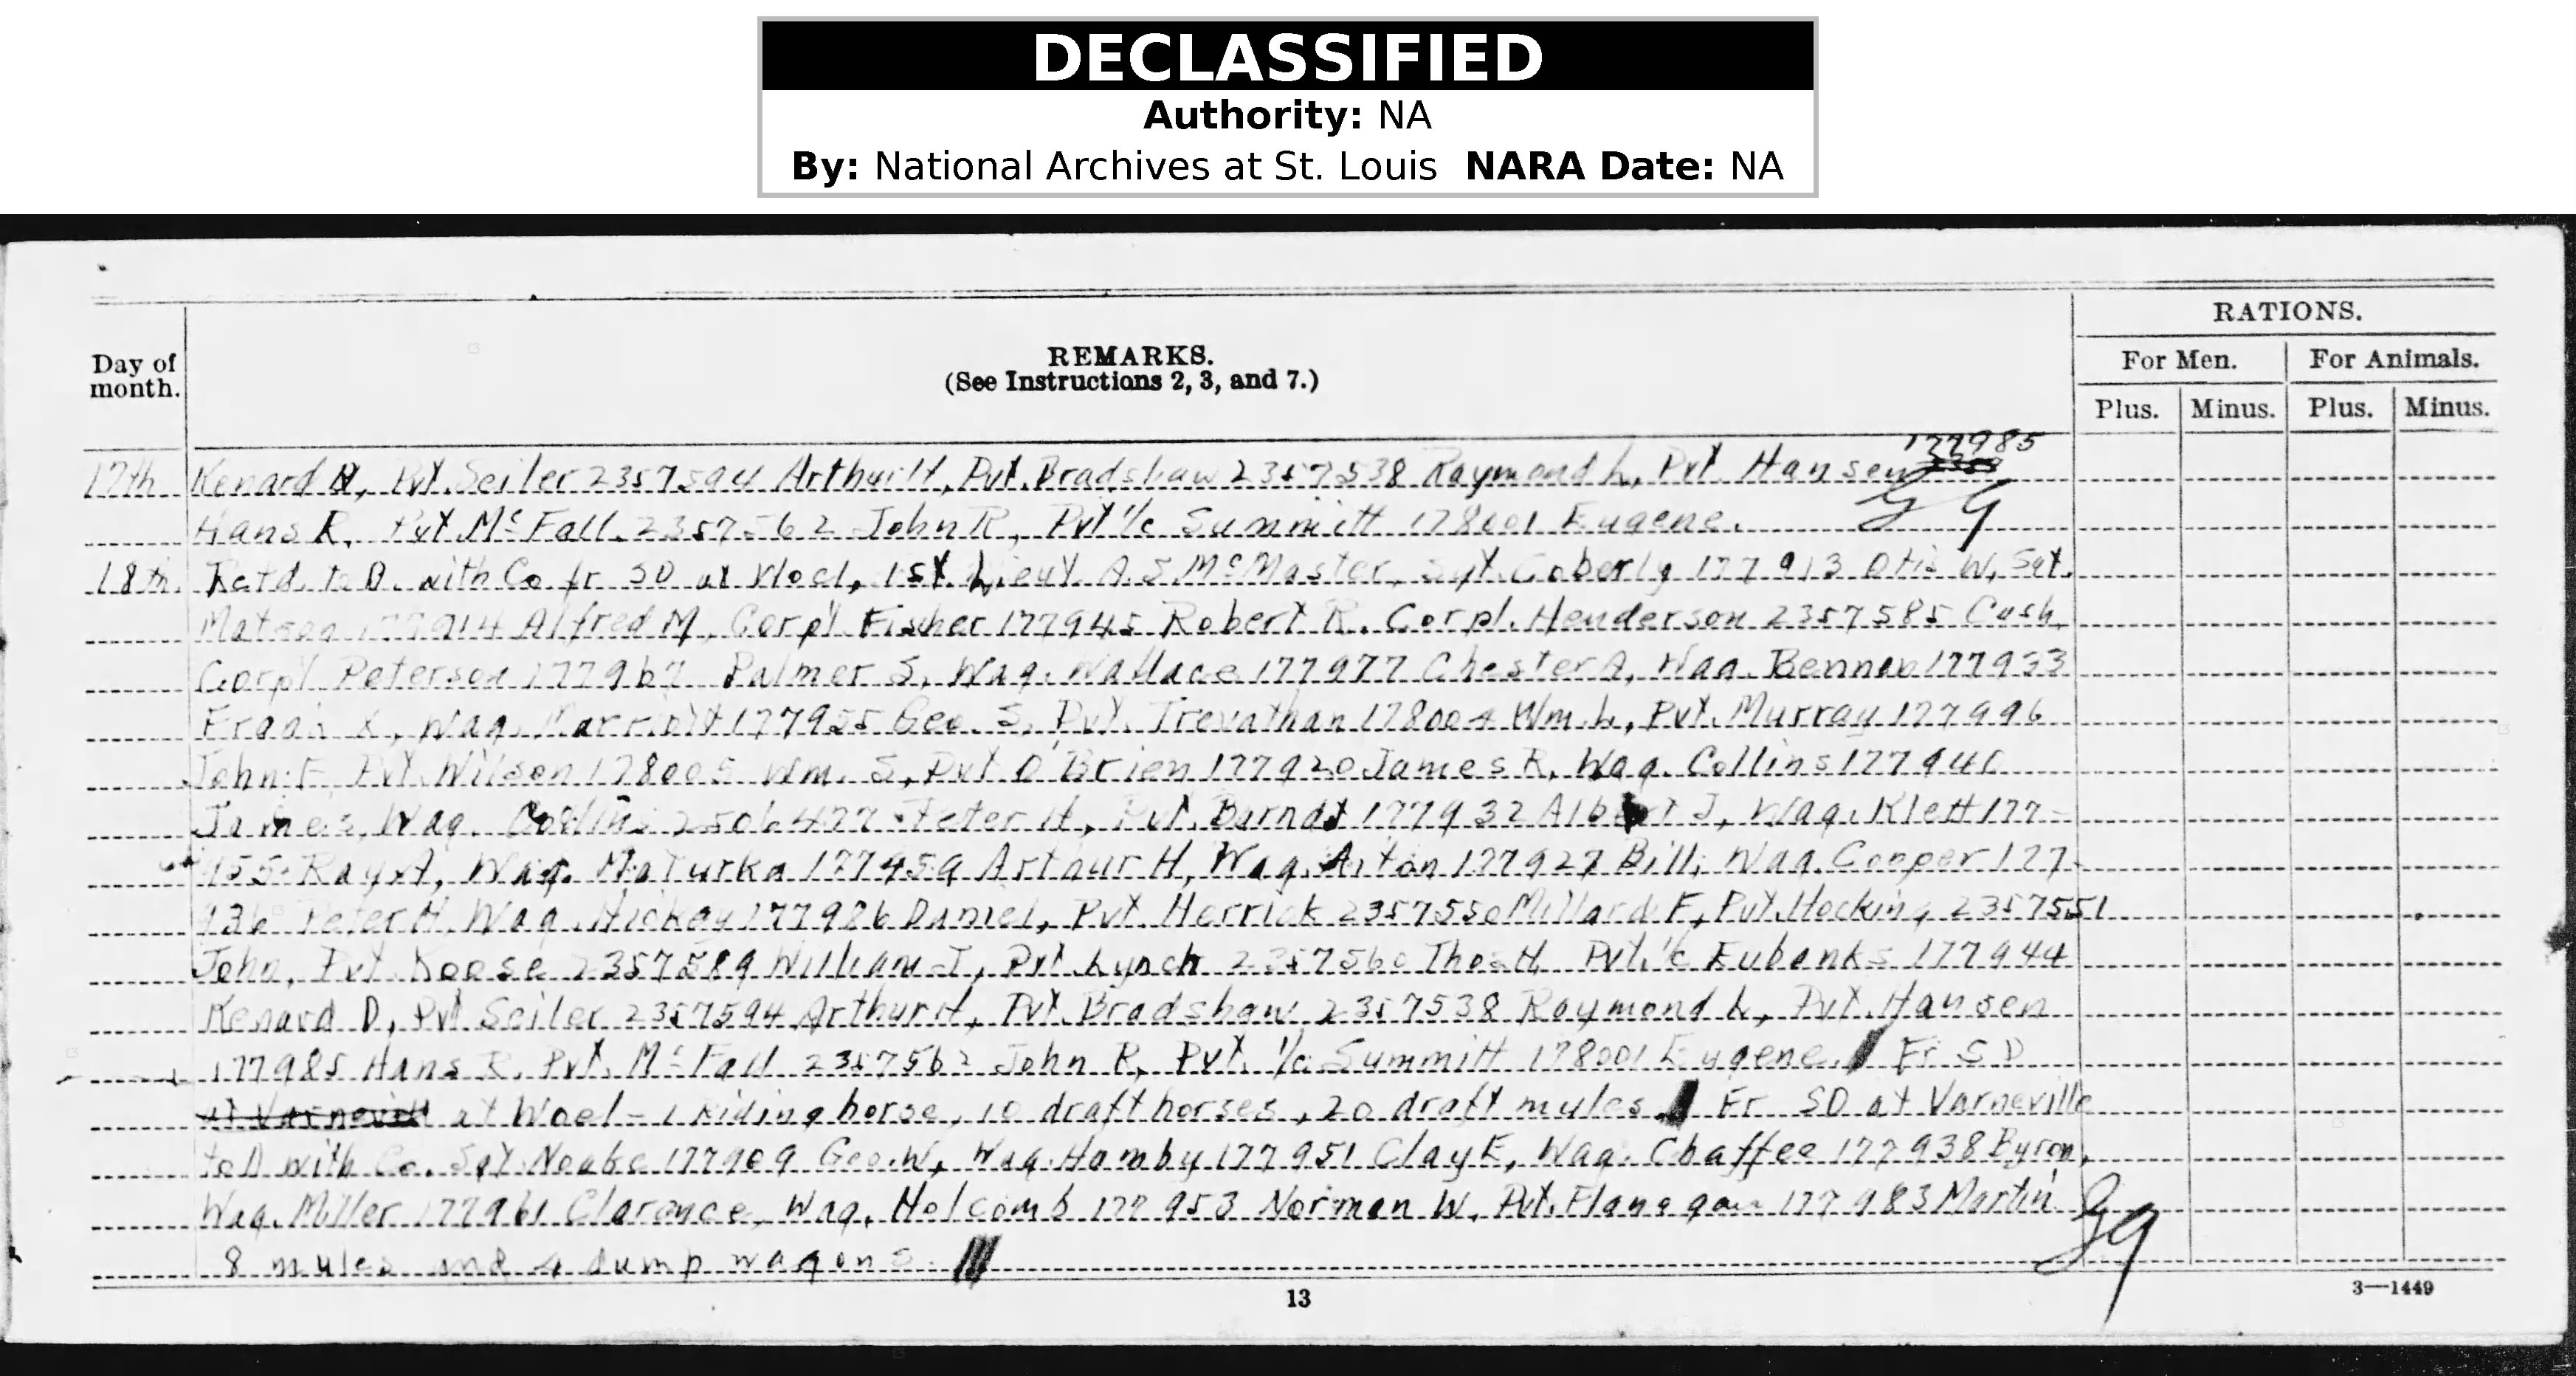 DECLASSIFIED
Authority: NA
By: National Archives at St. Louis NARA Date: NA
RATIONS.
Day of month.
REMARKS.
(See Instructions 2, 3, and 7.)
For Men.
For Animals.
Plus.
Minus.
Plus.
Minus.
177985
17th Kenard D, Pvt. Seiler 2357594 Arthur H, Pvt. Bradshaw 2357538 Raymond L, Pvt. Hansen
Hans R, Pvt. McFall 2357562 John R, Pvt 1/c Summitt 178001 Eugene.
18th Retd. to D. with Co fr SD at Woel, 1st Lieut A.S. McMaster, Sgt. Coberly 177913 Otis W, Sgt.
Matson 177914 Alfred M, Corpl Fischer 177945 Robert R. Corpl. Henderson 2357585 Cash,
Corpl Peterson 177967 Palmer S, Wag. Wallace 177977 Chester A, Wag. 177933
Frank X, Wag. Marriott Geo. S, Pvt. Trevathan 178004 Wm. L, Pvt. Murray 177996
John F Pvt. Wilson 178005 Wm. S, Pvt O'Brien 177920 James R, Wag. Collins
James, Wag. Collins 2506477 Peter H, Pvt. Barndt 177932 Albert J, Wag. Klett 177-
955 Ray A, Wag. MaTurka Arthur H, Wag. 177927 Bill, Wag. Cooper 177-
936 Peter H, Wag. Hickey 177986 Daniel, Pvt. Herrick 2357550 Millard F, Pvt. Hocking 2357551
John, Pvt. Koose 2357589 William J, Pvt. Lynch 2357560 Thos H Pvt. 1/c Eubanks 177944
Kenard D, Pvt Seiler 2357594 Arthur H, Pvt. Bradshaw 2357538 Raymond L, Pvt. Hansen
177985 Hans R. Pvt. McFall 2357562 John R, Pvt. 1/c Summitt 178001 Eugene. Fr SD
at Varneville at Woel - 1 Riding horse, 10 draft horses, 20 draft mules Fr SD at Varneville
to D with Co. Sgt. Noake 177909 Geo. W, Wag. Hamby 177951 Clay E, Wag. Chaffee 177938 Byron,
Wag. Miller 177961 Clarance, Wag. Holcomb 177953 Norman W, Pvt. Flanagan 177983 Martin
8 mules and 4 dump wagons.
13
3—1449